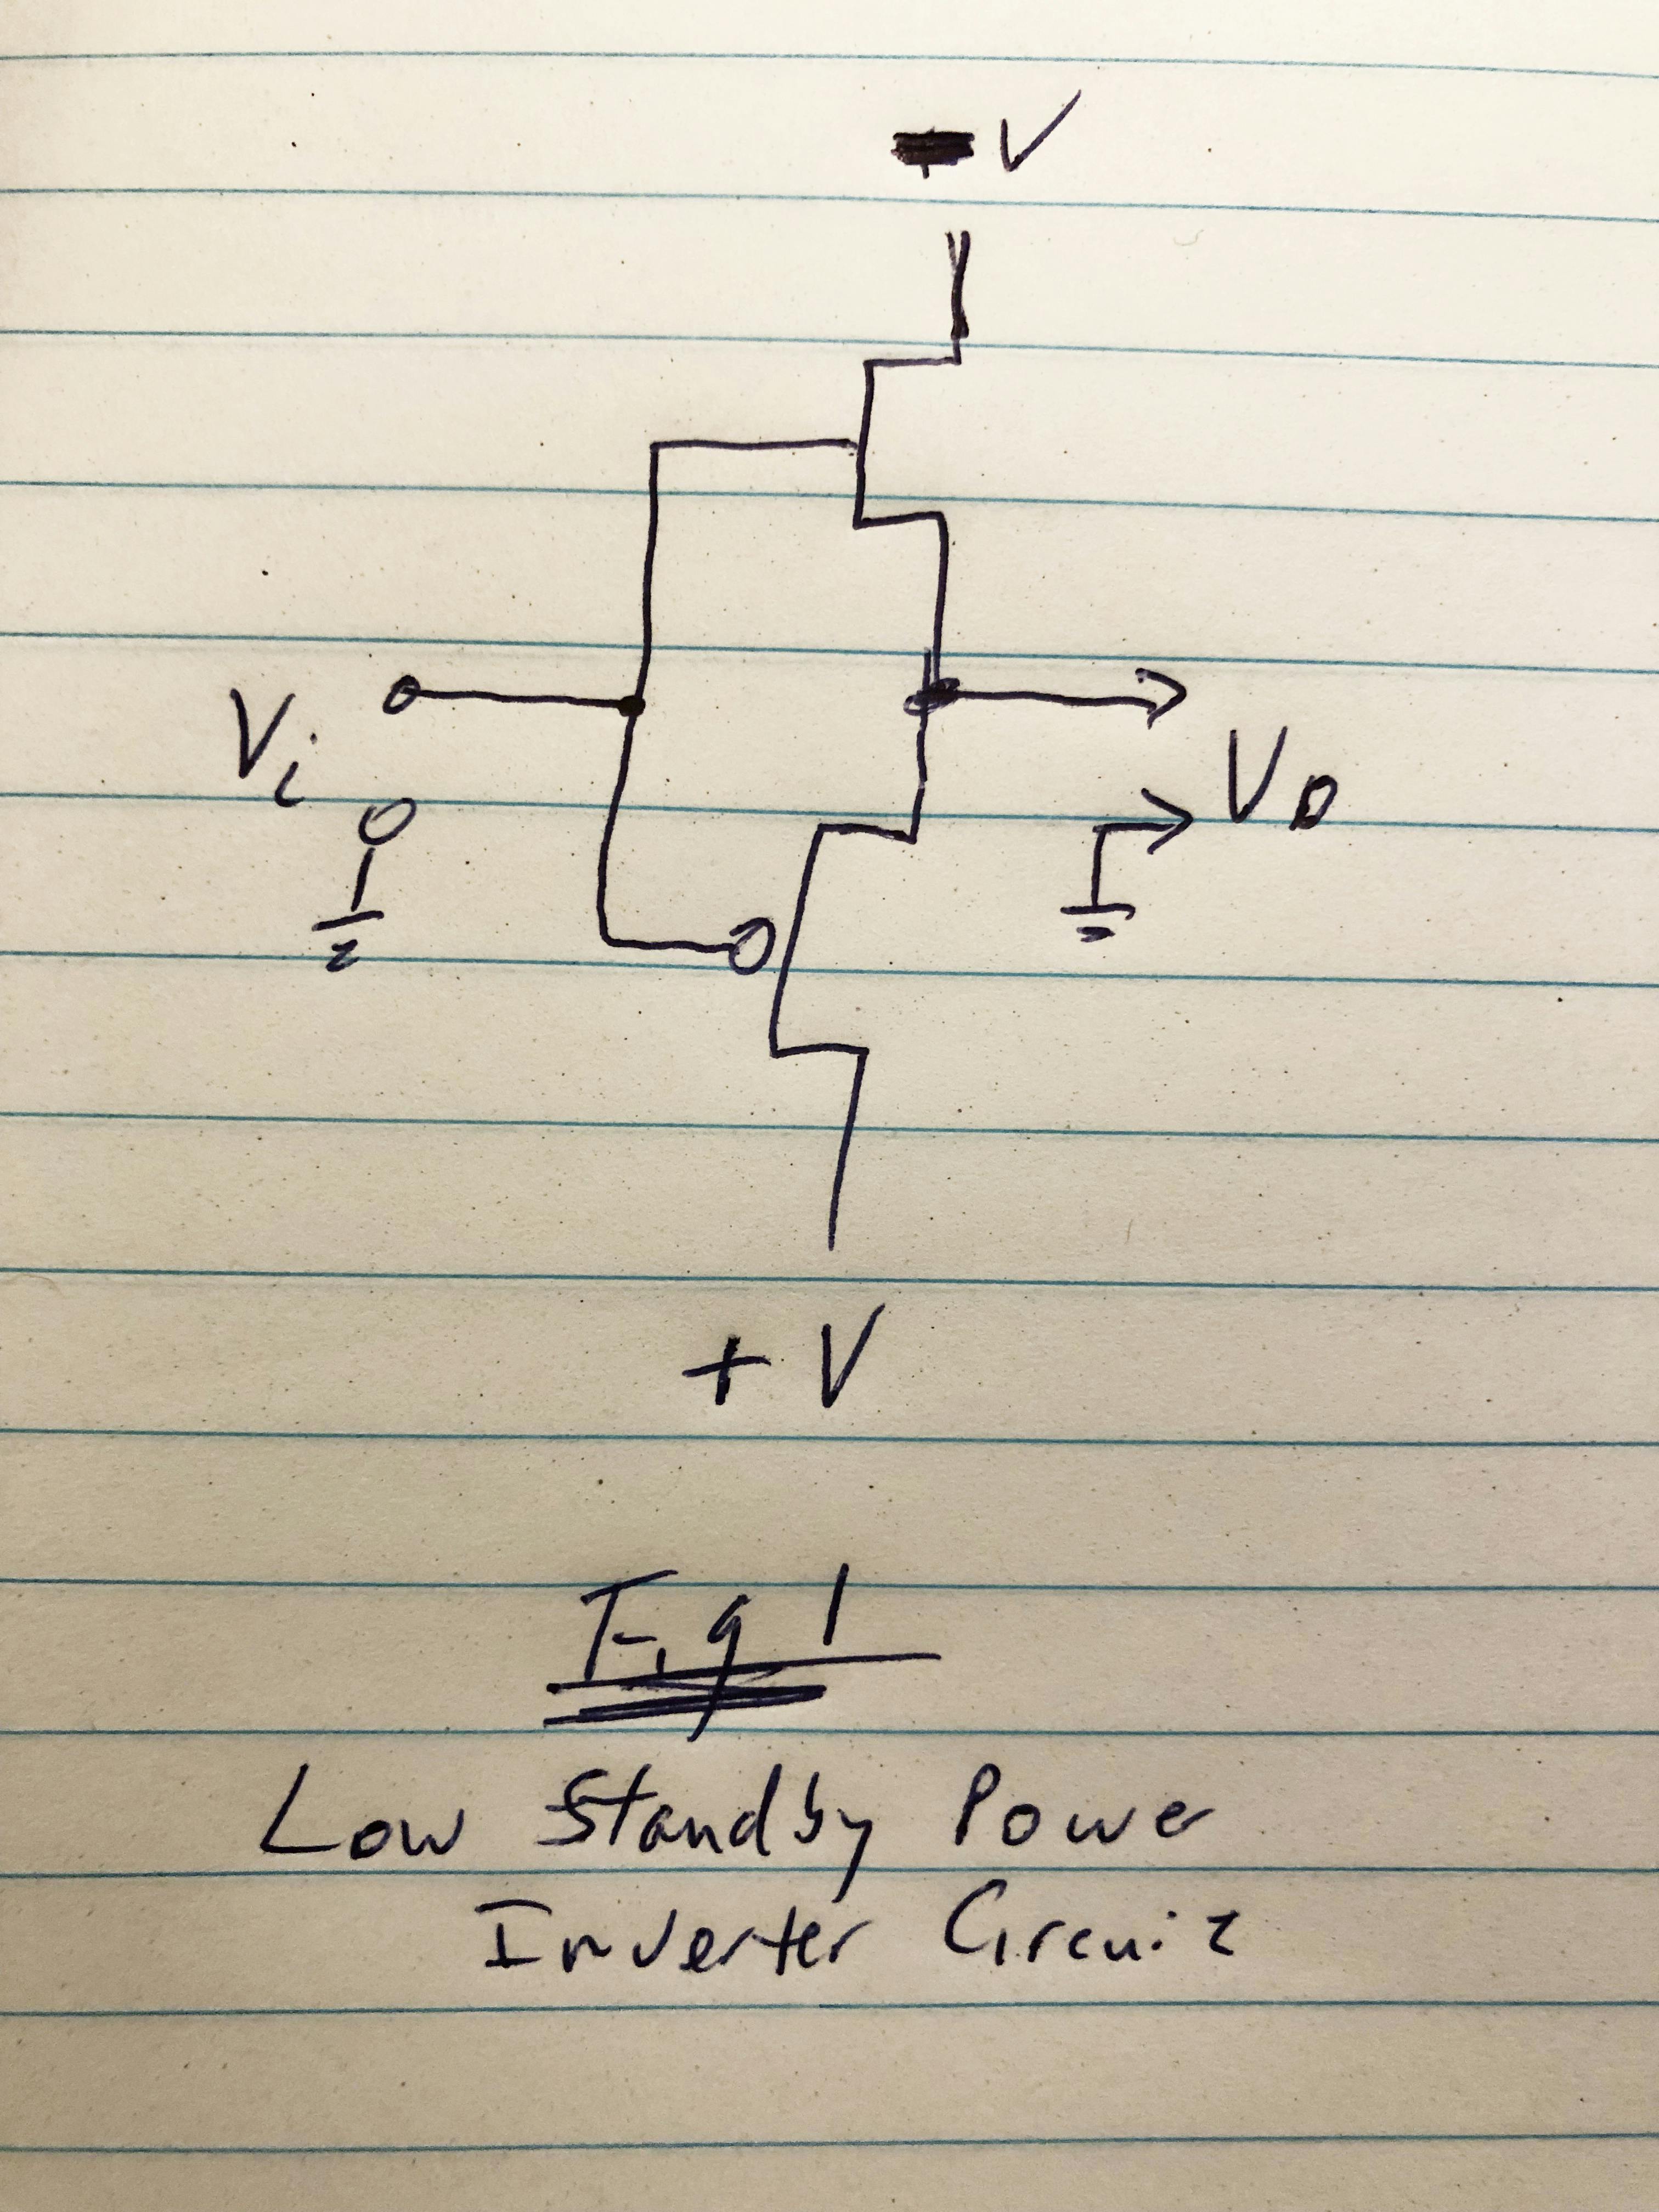 - V
Vi
Vo
+ V
Fig 1
Low Standby Power
Inverter Circuit